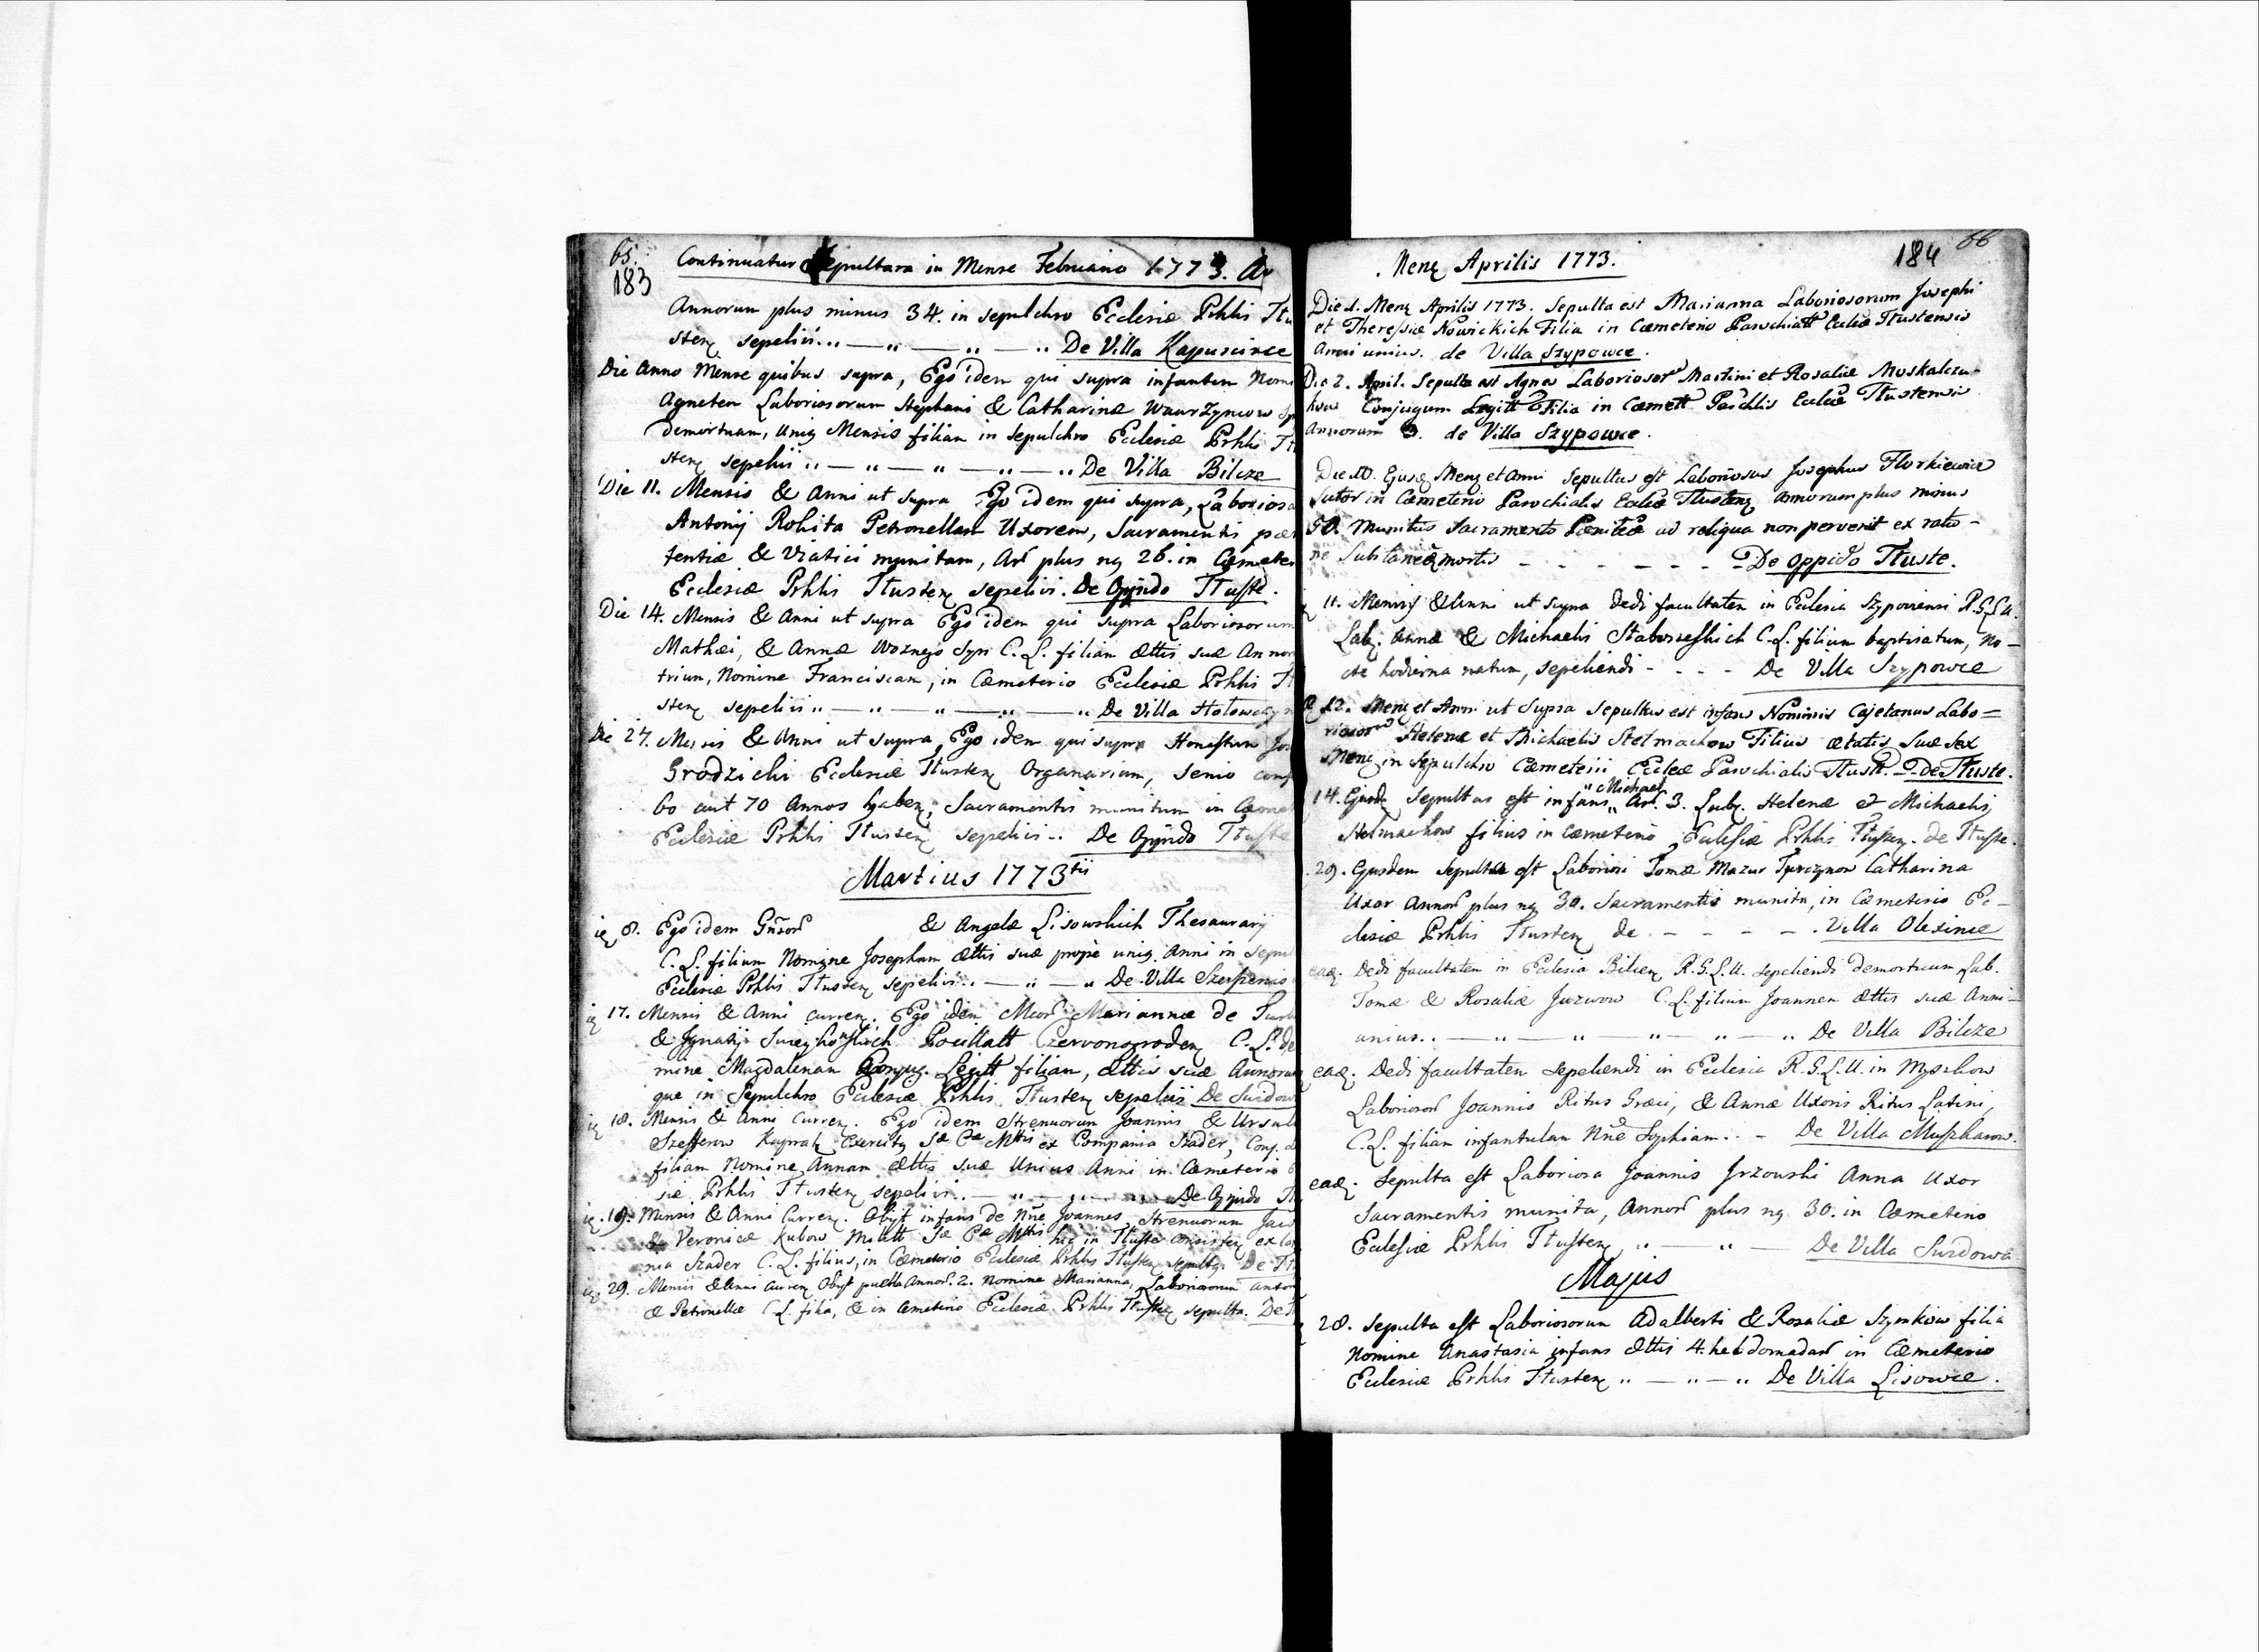 65.
183
Continuatur Sepultura in Mense Februario 1773. An
Annorum plus minus 34. in sepulchro Ecclesiæ Prhlis Tłu
stenȝ sepelivi... — „ — „ — „ De Villa Kapuscince
Die Anno Mense quibus supra, Ego idem qui supra infantem Nomi
Agneten Laboriosorum Stephani & Catharinæ Waurzynow
demortuam, uniȝ Mensis filiam in sepulchro Ecclesiæ Prhlis Tł
stenȝ sepelii „ — „ — „ — „ — „ De Villa Bilcze
Die 11. Mensis & Anni ut supra Ego idem qui supra, Laborios
Antonij Rohita Petronellam Uxorem, Sacramentis pæ
tentiæ & Viatici munitam, An plus nȝ 26. in Cæmete
Ecclesiæ Prhlis Tłustenȝ sepelivi. De Oppido Tłuste.
Die 14. Mensis & Anni ut supra Ego idem qui supra Laboriosorum
Mathæi, & Annæ Woznego Syn C. L. filiam Ættis suæ Annor
trium, Nomine Franciscam, in Cæmeterio Ecclesiæ Prhlis Tł
stenȝ sepelivi „ — „ — „ — „ — „ De Villa Hołowczyn
Die 27. Mensis & Anni ut supra, Ego idem qui supra Honestum Jos
Grodzicki Ecclesiæ Tłustenȝ Organarium, senio conf
60 aut 70 Annos habenȝ, Sacramentis munitum in Cæme
Ecclesiæ Prhlis Tłustenȝ sepelivi.. De Oppido Tłuste
Martius 1773tii
8. Ego idem Gnsor & Angelæ Lisowskich Thesaurarij
C. L. filium Nomine Josephum Ættis suæ prope uniȝ. Anni in Sepu
Ecclesiæ Prhlis Tłustenȝ sepelivi.. — „ — „ De Villa Szerszenio
17. Mensis & Anni currenȝ. Ego idem Mcor Mariannæ de
& Ignatij Pocillatt Czervonogrodenȝ C. L. de
mine Magdalenam Conjug. Legitt filiam, Ættis suæ Annorum
que in Sepulchro Ecclesiæ Prhlis Tłustenȝ sepelii De Swidow
18. Mensis & Anni Currenȝ. Ego idem Strenuorum Joannis & Ursul
Szefferow Kapral Exercitȝ Sæ Cæ Mttis ex Compania Szader, Conj.
filiam Nomine Annam Ættis suæ Unius Anni in Cæmeterio
siæ Prhlis Tłustenȝ sepelivi.. — „ — „ De Oppido Tł
19. Mensis & Anni Currenȝ. Obijt infans de Nne Joannes, Strenuorum Jac
& Veronicæ Kubow Milatt Sæ Cæ Mttis hic in Tłuste consistenȝ ex Co
nia Szader C. L. filius, in Cæmeterio Ecclesiæ Prhlis Tłustenȝ sepultȝ. De Tł
29. Mensis & Anni currenȝ Obijt puella Annor. 2. Nomine Marianna, Laboriosorum Anton
& Petronellæ C. L. filia, & in Cæmeterio Ecclesiæ Prhlis Tłustenȝ sepulta. De
Menȝ Aprilis 1773.
184
66
Die 1. Menȝ Aprilis 1773. Sepulta est Marianna Laboriosorum Josephi
et Theressiæ Nowickich Filia in Cæmeterio Parochiatt Ecclæ Tłustensis
Anni unius. de Villa Szypowce.
Die 2. April. Sepulta est Agnes Laboriosor Martini et Rosaliæ Moskalczu-
kow Conjugum Legitt Filia in Cæmett Parchlis Eccliæ Tłustensis
Annorum 3. de Villa Szypowce.
Die 10. Ejusȝ Menȝ et Anni Sepultus est Laboriosus Josephus Florkiewicz
Sutor in Cæmeterio Parochialis Eccliæ Tłustenȝ annorum plus minus
50. munitus Sacramento Pæniteæ ad reliqua non pervenit ex ratio-
ne Subitaneæ mortis - - - - - - De Oppido Tłuste.
11. Mensis & Anni ut supra dedi facultatem in Ecclesia Szypoviensi R.G.L.U.
Labȝ. Annæ & Michaelis C. L. filium baptisatum, No-
cte hodierna natum, sepeliendi - - - De Villa Szypowce
12. Menȝ et Anni ut Supra Sepultus est infans Nominis Cajetanus Labo=
riosor Helenæ et Michaelis Stelmachow Filius ætatis suæ sex
Menȝ in Sepulchro Cæmeterii Eccleæ Parochialis Tłustt. - de Tłuste.
14. Ejusdȝ Sepultus est infans „Michael„ An. 3. Labȝ. Helenæ & Michaelis
Stelmachow filius in Cæmeterio Ecclesiæ Prhlis Tłustenȝ. de Tłuste.
29. Ejusdem sepulta est Laboriosi Tomæ Mazur Catharina
Uxor Annor plus nȝ 30. Sacramentis munita, in Cæmeterio Ec-
clesiæ Prhlis Tłustenȝ de - - - - . Villa Olexince
eaȝ. Dedi facultatem in Ecclesia Bilcenȝ R.G.L.U. sepeliendi demortuum Lab.
Tomæ & Rosaliæ Juzwow C. L. filium Joannem Ættis suæ Anni-
unius.. — „ — „ — „ — „ — „ De Villa Bilcze
eaȝ. Dedi facultatem sepeliendi in Ecclesia R.G.L.U. in Myszkow
Laboriosor Joannis Ritus Græci, & Annæ Uxoris Ritus Latini,
C. L. filiam infantulam Nne Sophiam.. - De Villa Muszkarow.
eaȝ. Sepulta est Laboriosa Joannis Jrzowski Anna Uxor
Sacramentis munita, Annor plus nȝ. 30. in Cæmeterio
Ecclesiæ Prhlis Tłustenȝ „ — „ — De Villa Swidowa
Majus
28. Sepulta est Laboriosorum Adalberti & Rosaliæ Szymkow filia
Nomine Anastasia infans Ættis 4. hebdomadar in Cæmeterio
Ecclesiæ Prhlis Tłustenȝ „ — „ — „ De Villa Lisowce.